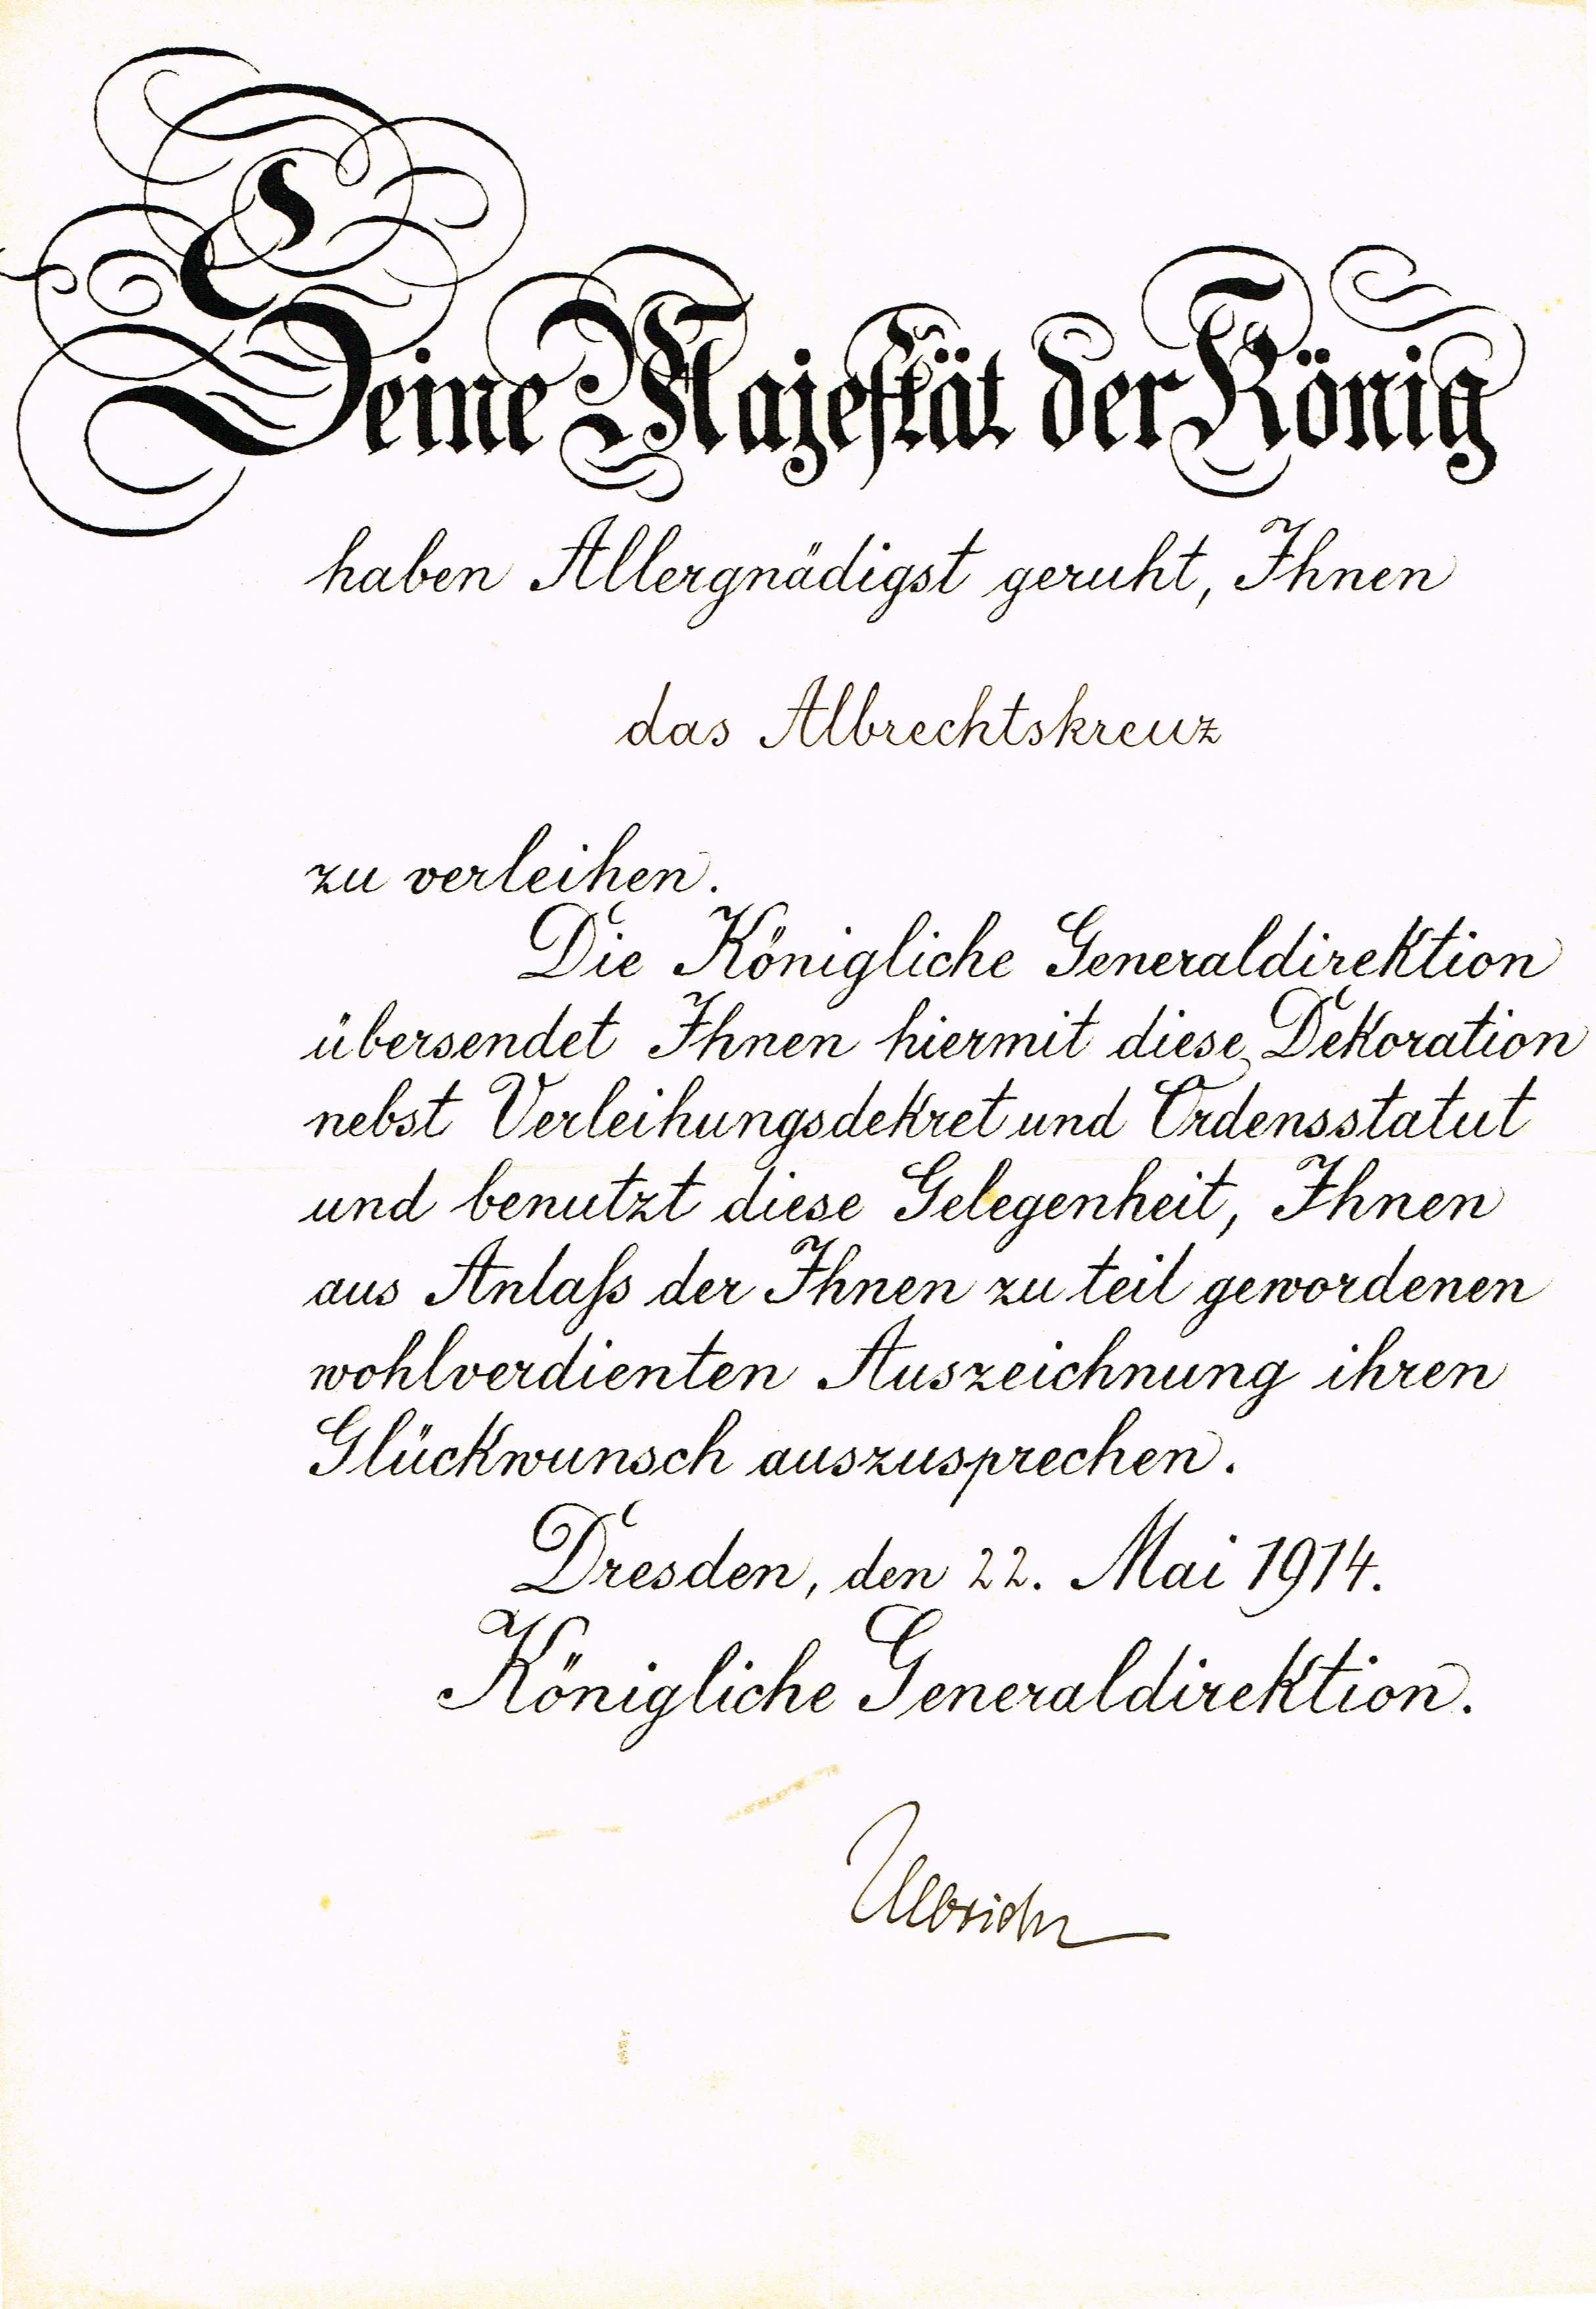 Seine Majestät der König
haben Allergnädigst geruht, Ihnen
das Albrechtskreuz
zu verleihen.
Die Königliche Generaldirektion
übersendet Ihnen hiermit diese Dekoration
nebst Verleihungsdekret und Ordensstatut
und benutzt diese Gelegenheit, Ihnen
aus Anlaſs der Ihnen zu teil gewordenen
wohlverdienten Auszeichnung ihren
Glückwunsch auszusprechen.
Dresden, den 22. Mai 1914.
Königliche Generaldirektion.
Ulbricht